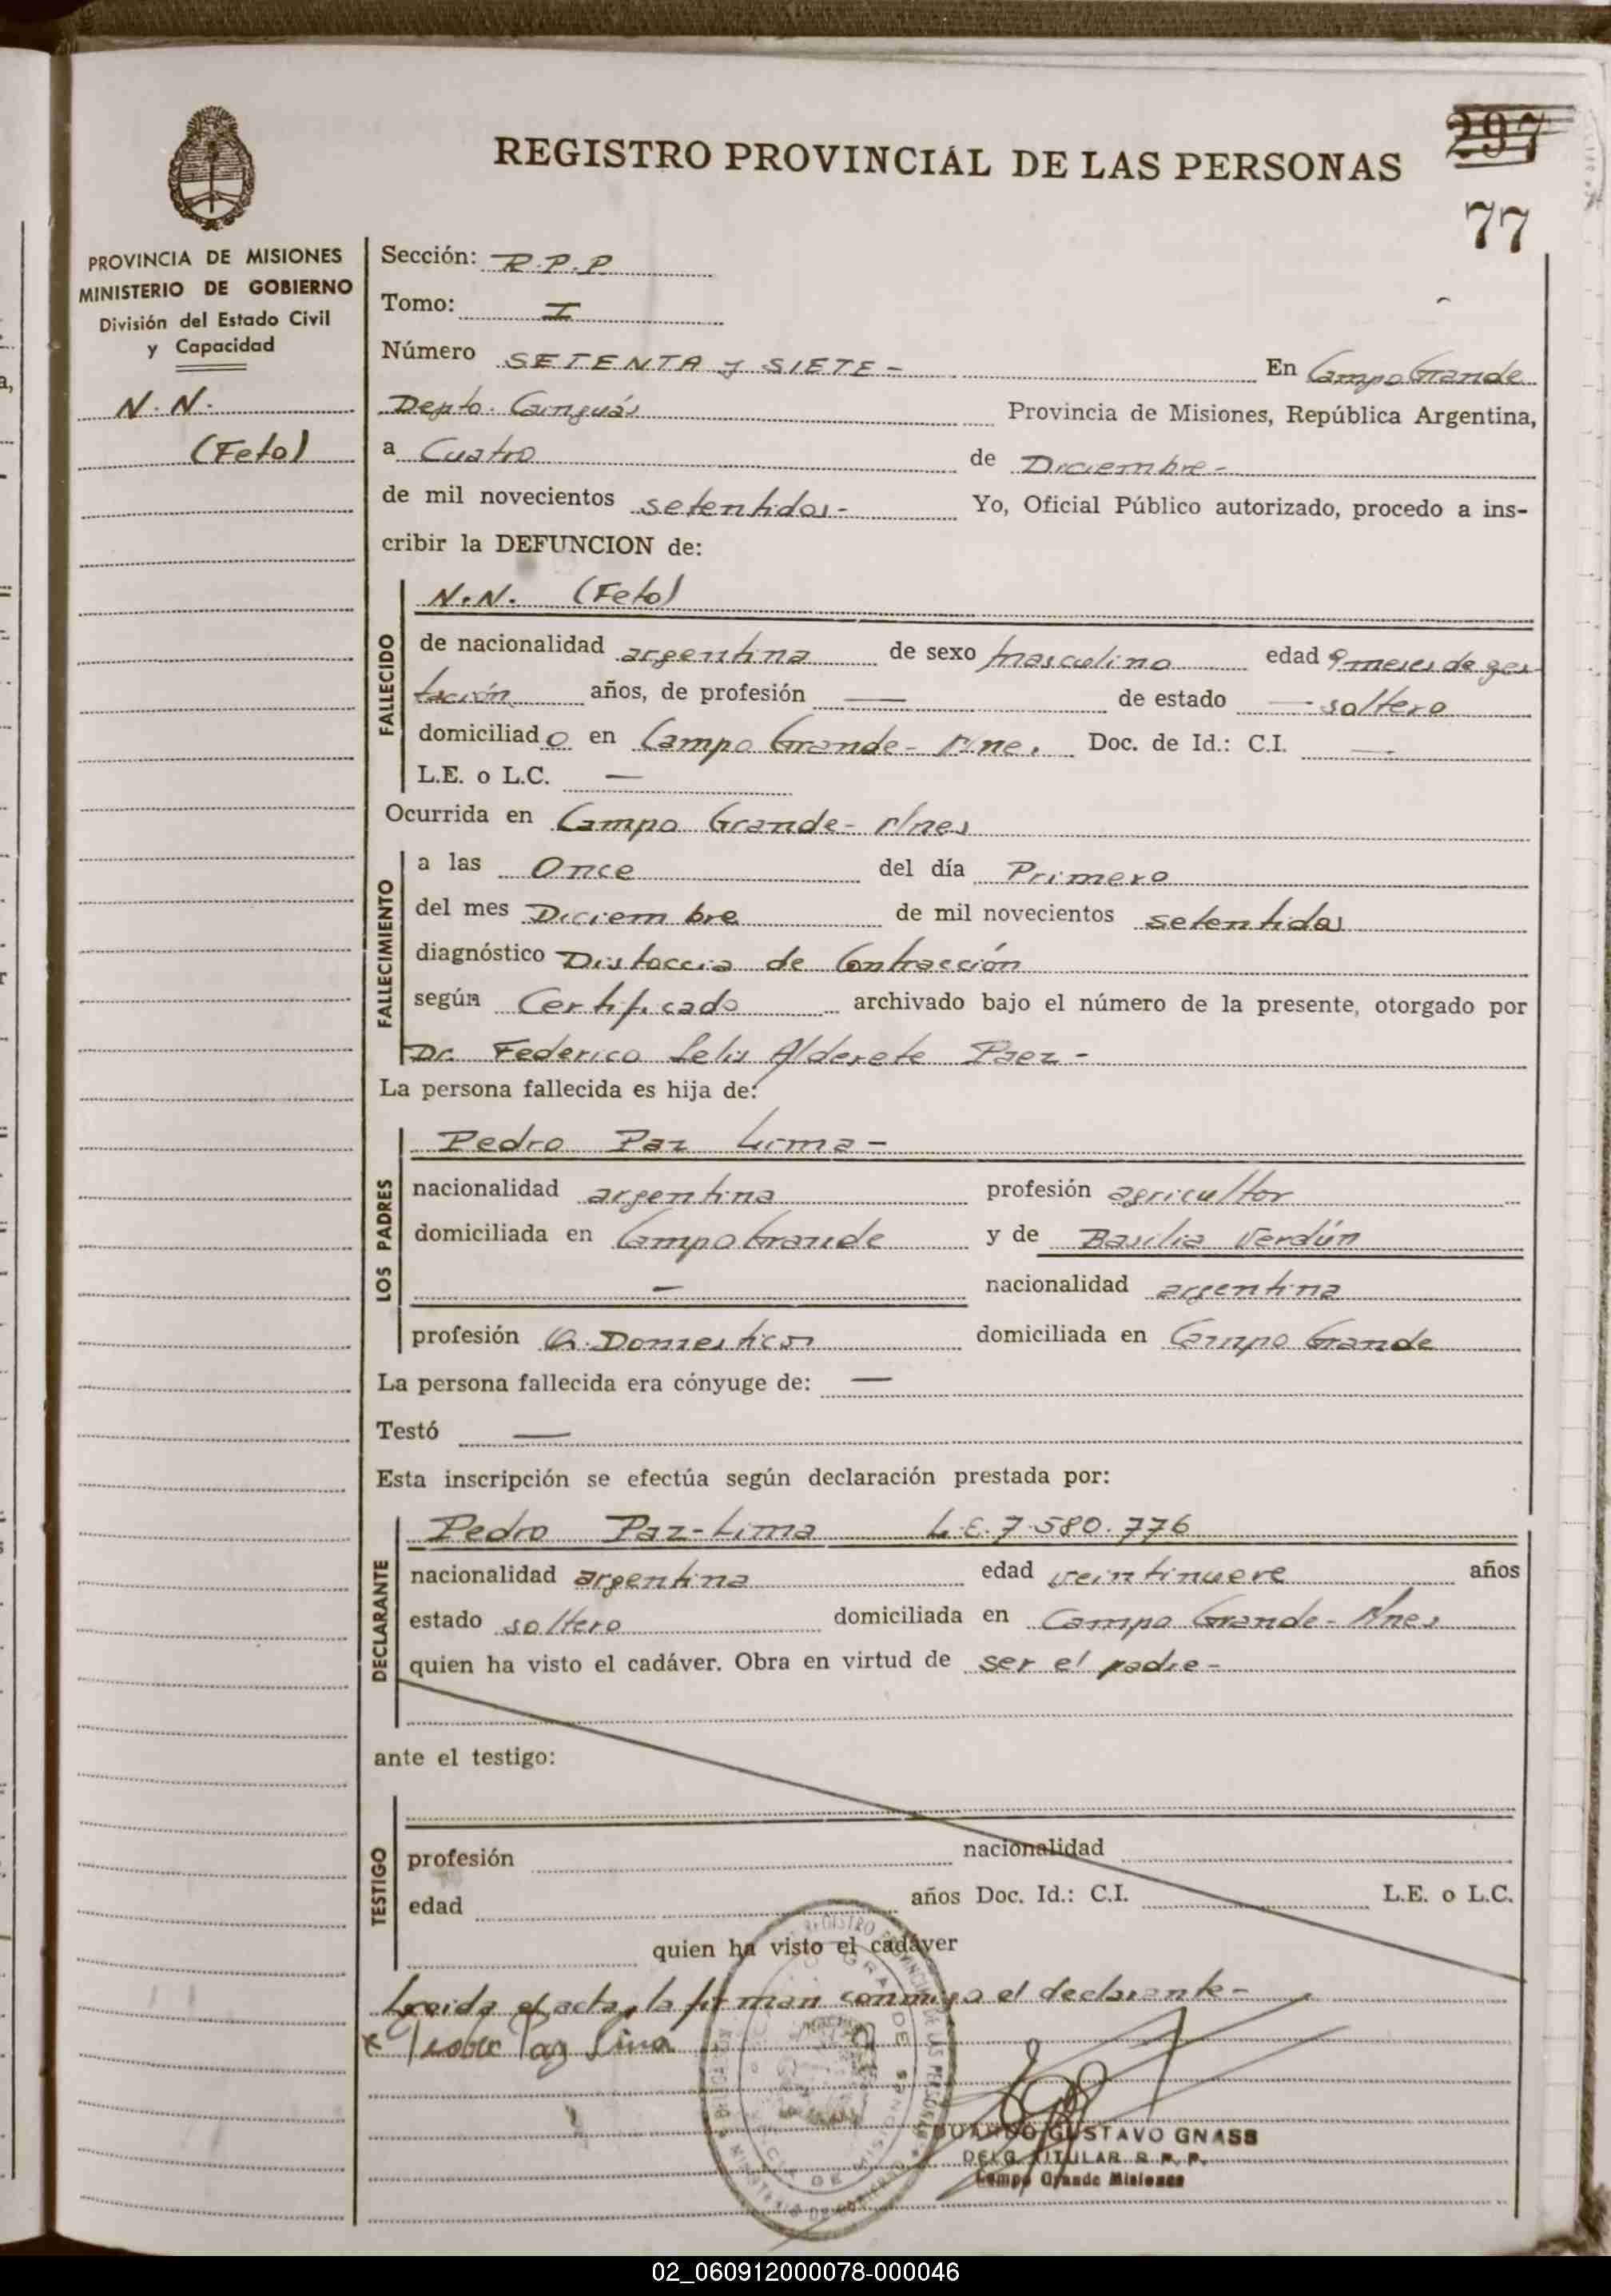 REGISTRO PROVINCIAL DE LAS PERSONAS
297
77
PROVINCIA DE MISIONES
MINISTERIO DE GOBIERNO
División del Estado Civil
y Capacidad
N. N.
(Feto)
Sección: R.P.P
Tomo: I
Número SETENTA y SIETE - En Campo Grande
Depto. Cainguás Provincia de Misiones, República Argentina,
a Cuatro de Diciembre -
de mil novecientos setentidos - Yo, Oficial Público autorizado, procedo a ins-
cribir la DEFUNCION de:
FALLECIDO
N.N. (Feto)
de nacionalidad argentina de sexo masculino edad 9 meses de ges-
tación años, de profesión — de estado — soltero
domiciliado en Campo Grande - Mnes. Doc. de Id.: C.I. —
L.E. o L.C. —
Ocurrida en Campo Grande - Mnes
FALLECIMIENTO
a las Once del día Primero
del mes Diciembre de mil novecientos setentidos
diagnóstico Distoccia de Contracción
según Certificado archivado bajo el número de la presente, otorgado por
Dr. Federico Lelis Alderete Paez -
La persona fallecida es hija de:
LOS PADRES
Pedro Paz Lima -
nacionalidad argentina profesión agricultor
domiciliada en Campo Grande y de Basilia Verdún
— nacionalidad argentina
profesión Q. Domesticos domiciliada en Campo Grande
La persona fallecida era cónyuge de: —
Testó —
Esta inscripción se efectúa según declaración prestada por:
DECLARANTE
Pedro Paz-Lima L.E. 7.580.776
nacionalidad argentina edad veintinueve años
estado soltero domiciliada en Campo Grande - Mnes
quien ha visto el cadáver. Obra en virtud de ser el padre -
ante el testigo:
TESTIGO
profesión nacionalidad
edad años Doc. Id.: C.I. L.E. o L.C.
quien ha visto el cadáver
Leida el acta, la firman conmigo el declarante -
x Pedro Paz Lima
GUSTAVO GNASS
DELG. TITULAR R. P. P.
Campo Grande Misiones
02_060912000078-000046